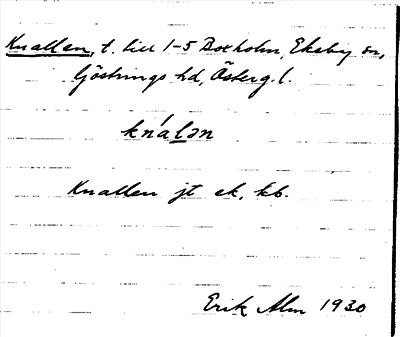 Knallen, t. till 1-5 Boxholm, Ekeby sn,
Göstrings hd, Österg. l.
knálən
Knallen jt ek. kb.
Erik Alm 1930